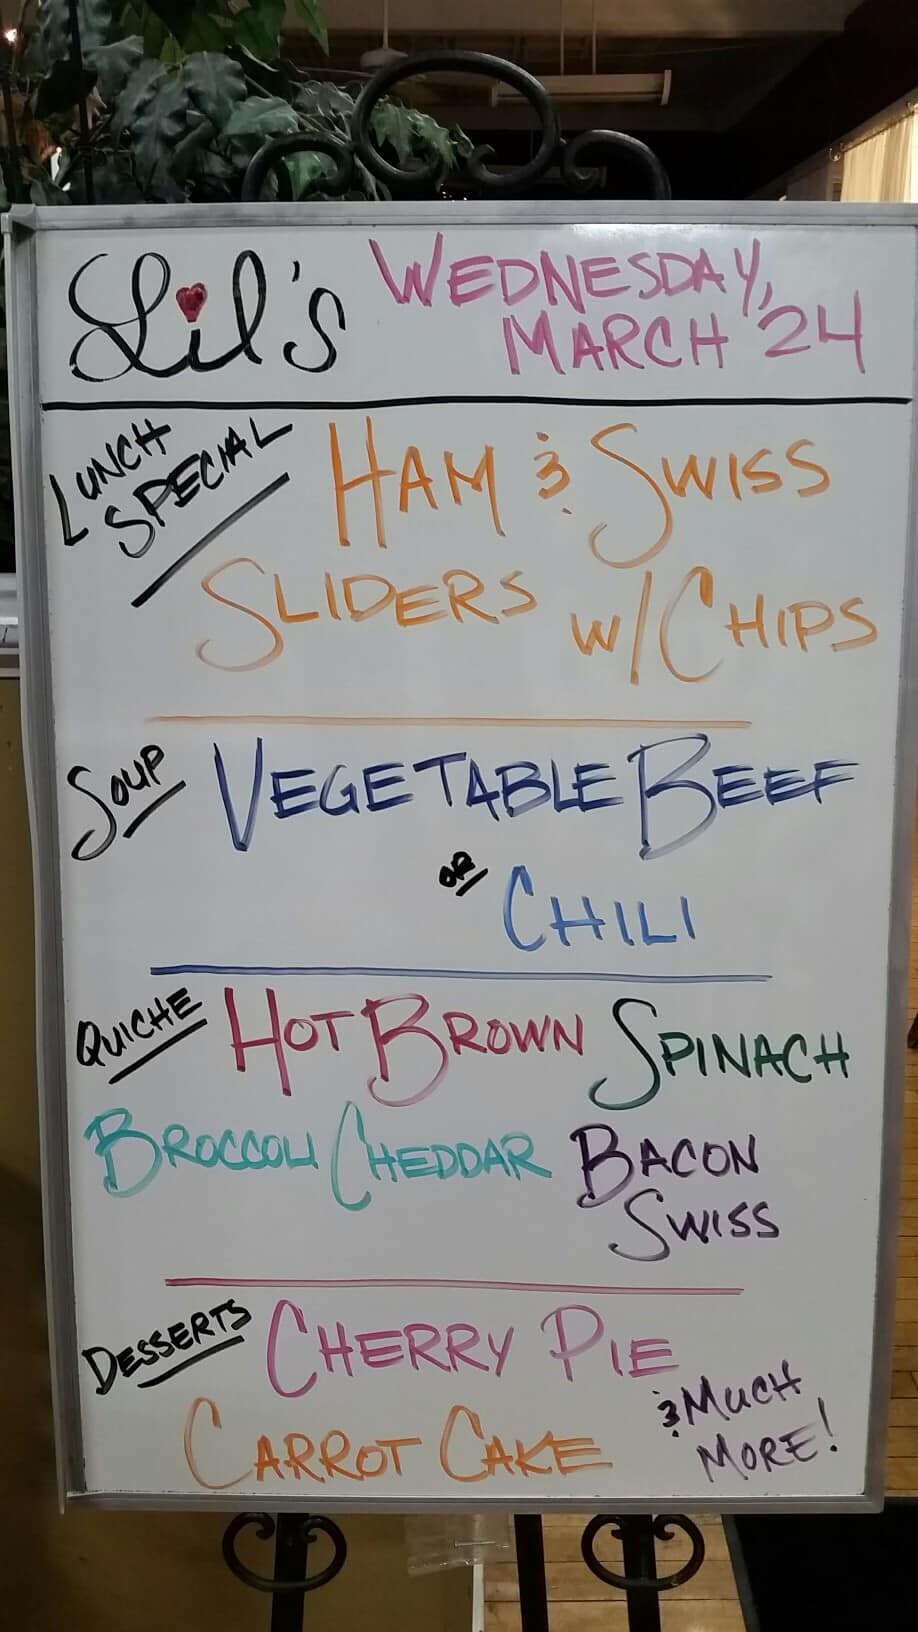 Lil's
WEDNESDAY,
MARCH 24
LUNCH
SPECIAL
HAM & SWISS
SLIDERS W/ CHIPS
SOUP
VEGETABLE BEEF
OR
CHILI
QUICHE
HOT BROWN SPINACH
BROCCOLI CHEDDAR BACON
SWISS
DESSERTS
CHERRY PIE
CARROT CAKE
& MUCH
MORE!